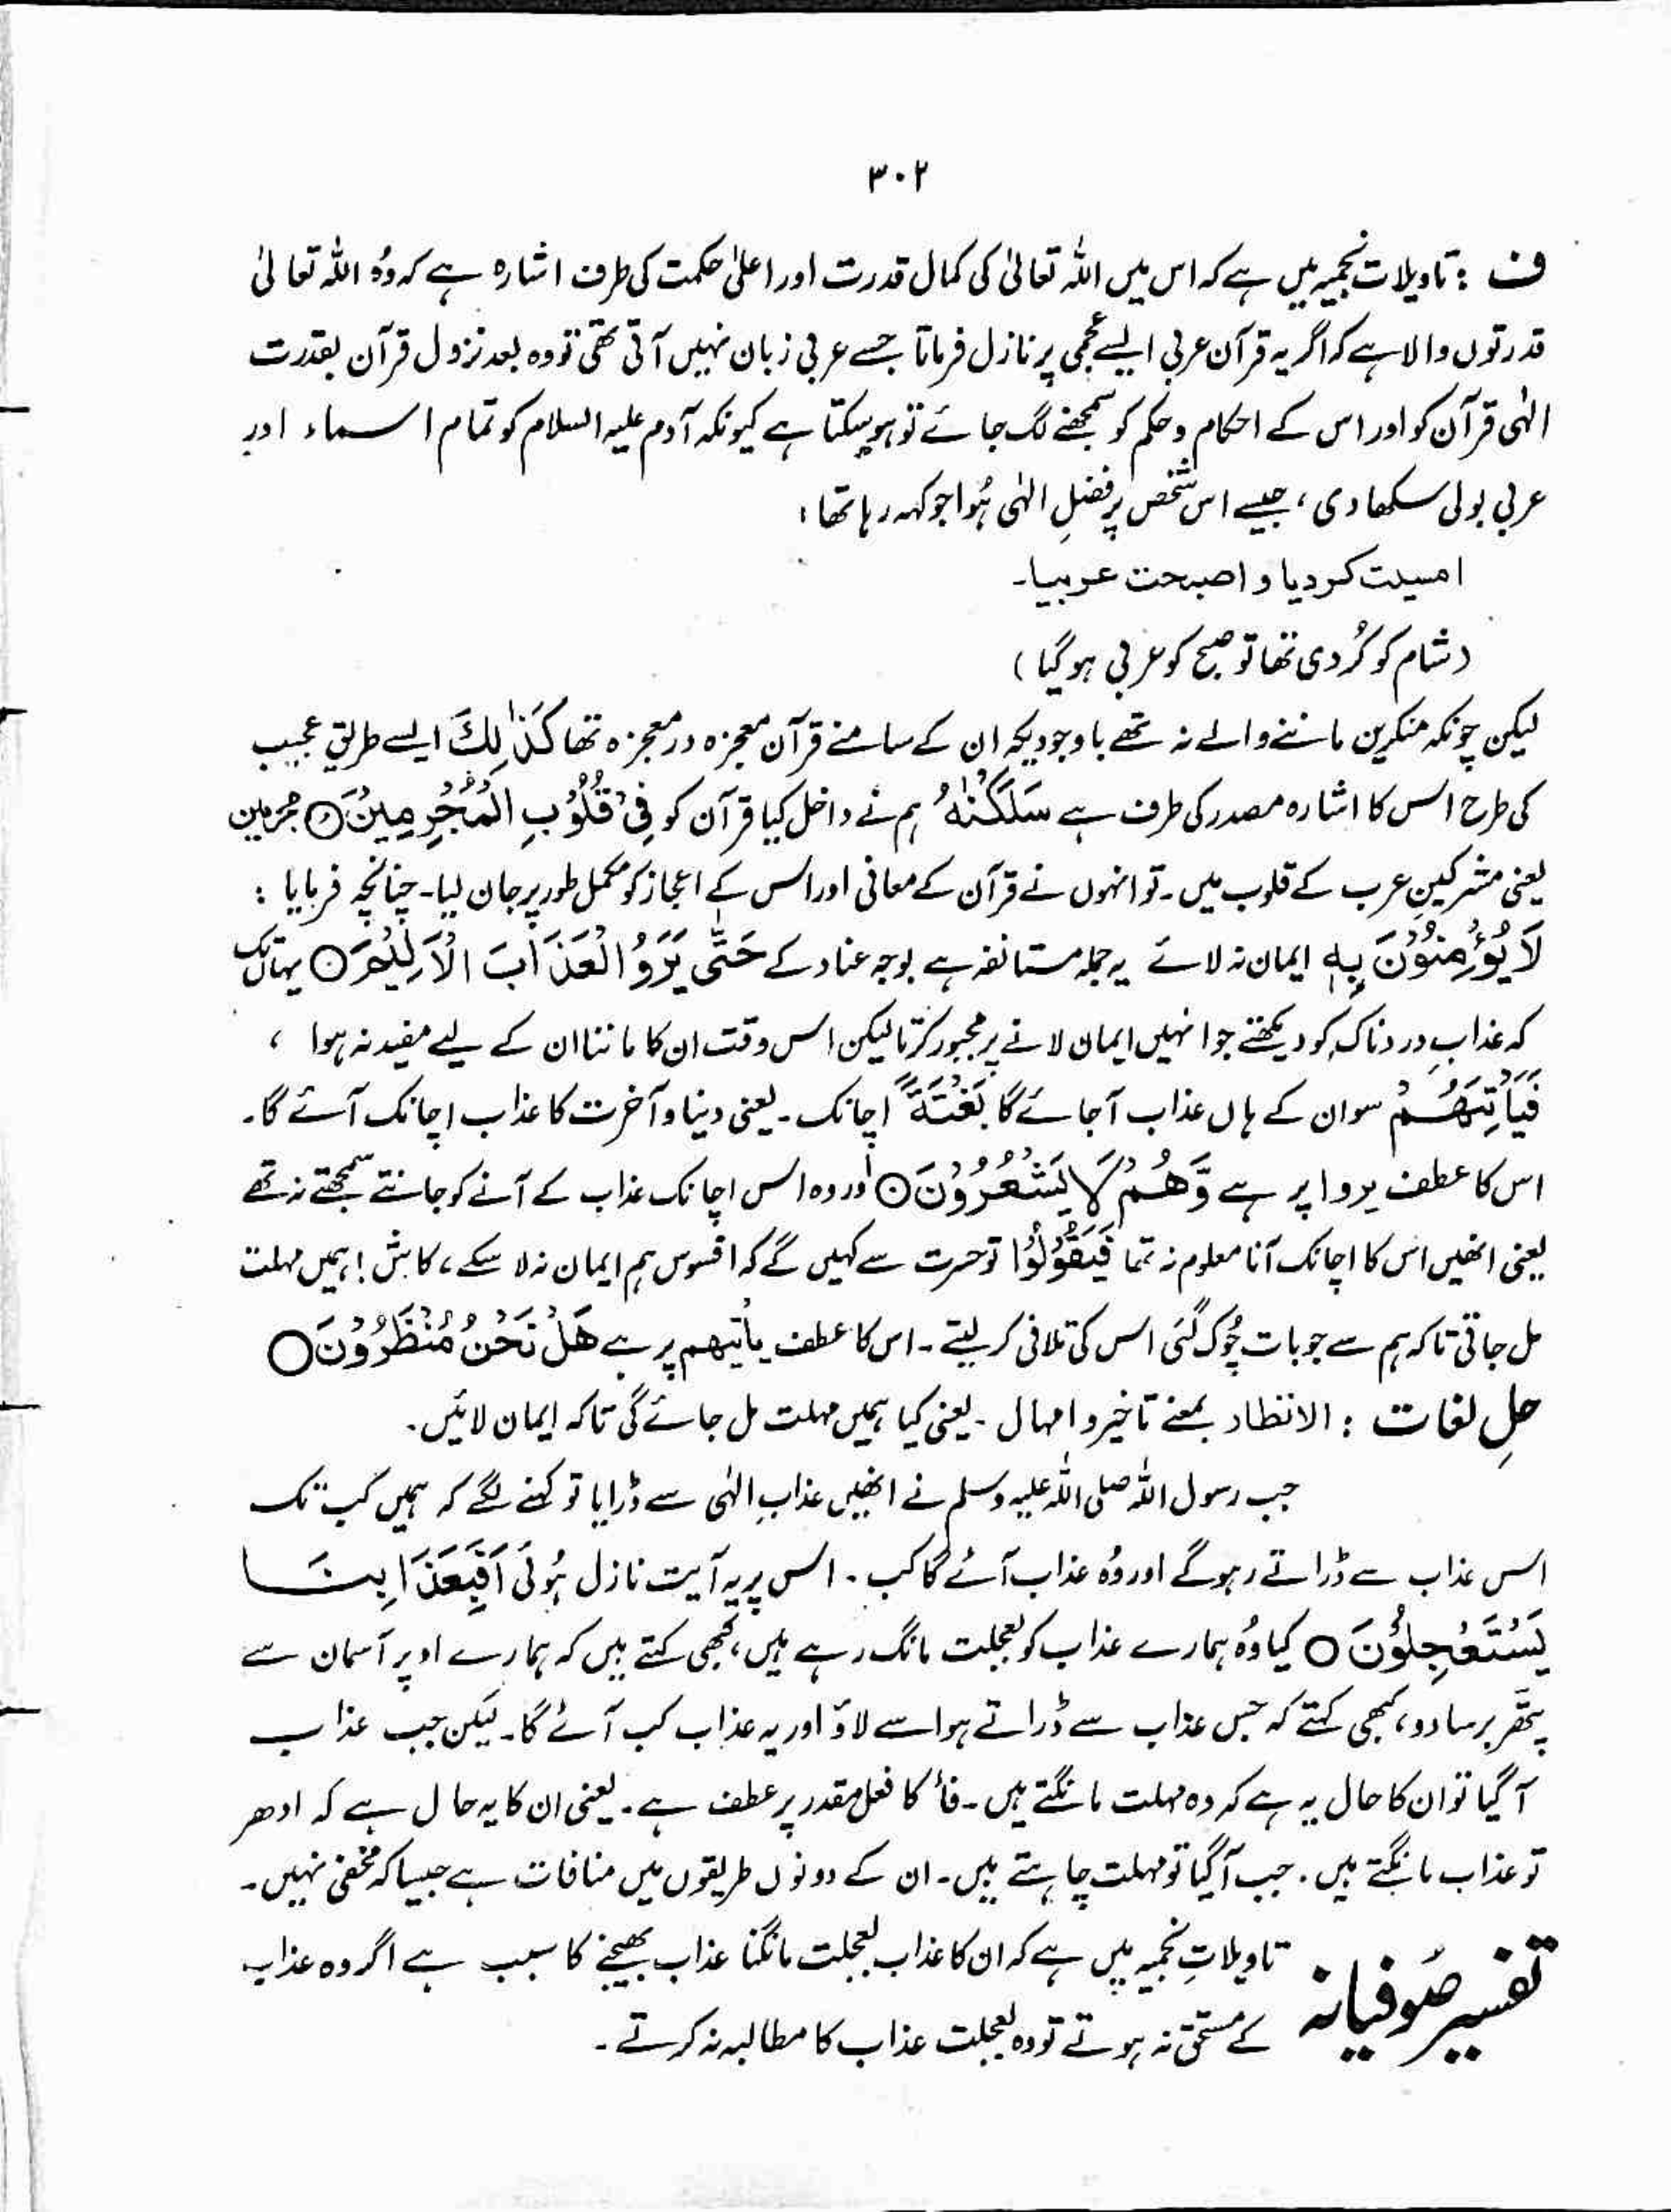 ۳۰۲
ف : تاویلات نجمیہ میں ہے کہ اس میں اللہ تعالیٰ کی کمال قدرت اور اعلیٰ حکمت کی طرف اشارہ ہے کہ وُہ اللہ تعالیٰ
قدرتوں والا ہے کہ اگر یہ قرآن عربی ایسے عجمی پر نازل فرماتا جسے عربی زبان نہیں آتی تھی تو وہ بعد نزول قرآن بقدرت
الٰہی قرآن کو اور اس کے احکام و حکم کو سمجھنے لگ جائے تو ہو سکتا ہے کیونکہ آدم علیہ السلام کو تمام اسماء اور
عربی بولی سکھا دی ، جیسے اس شخص پر فضلِ الٰہی ہُوا جو کہہ رہا تھا ،
امسیت کردیا و اصبحت عربیا۔
(شام کو کُردی تھا تو صبح کو عربی ہو گیا)
لیکن چونکہ منکرین ماننے والے نہ تھے باوجودیکہ ان کے سامنے قرآن معجزہ در معجزہ تھا کَذٰلِكَ ایسے طریقِ عجیب
کی طرح اس کا اشارہ مصدر کی طرف ہے سَلَكْنٰهُ ہم نے داخل کیا قرآن کو فِیْ قُلُوْبِ الْمُجْرِمِيْنَ○ مجرمین
یعنی مشرکینِ عرب کے قلوب میں۔ تو انہوں نے قرآن کے معانی اور اس کے اعجاز کو مکمل طور پر جان لیا۔ چنانچہ فرمایا :
لَا يُؤْمِنُوْنَ بِهٖ ایمان نہ لائے یہ جملہ مستانفہ ہے بوجہ عناد کے حَتّٰى يَرَوُا الْعَذَابَ الْاَلِيْمَ○ یہاں تک
کہ عذابِ دردناک کو دیکھتے جو انہیں ایمان لانے پر مجبور کرتا لیکن اس وقت ان کا ماننا ان کے لیے مفید نہ ہوا ،
فَيَاْتِيَهُمْ سو ان کے ہاں عذاب آ جائے گا بَغْتَةً اچانک۔ یعنی دنیا و آخرت کا عذاب اچانک آئے گا۔
اس کا عطف یروا پر ہے وَّهُمْ لَا يَشْعُرُوْنَ○ اور وہ اس اچانک عذاب کے آنے کو جانتے سمجھتے نہ تھے
یعنی انھیں اس کا اچانک آنا معلوم نہ تھا فَيَقُوْلُوْا تو حسرت سے کہیں گے کہ افسوس ہم ایمان نہ لا سکے ، کاش! ہمیں مہلت
مل جاتی تاکہ ہم سے جو بات چُوک گئی اس کی تلافی کر لیتے ۔ اس کا عطف یأتیھم پر ہے هَلْ نَحْنُ مُنْظَرُوْنَ○
حلِ لغات : الانظار بمعنے تاخیر و امہال ۔ یعنی کیا ہمیں مہلت مل جائے گی تاکہ ایمان لائیں۔
جب رسول اللہ صلی اللہ علیہ وسلم نے انھیں عذابِ الٰہی سے ڈرایا تو کہنے لگے کہ ہمیں کب تک
اس عذاب سے ڈراتے رہو گے اور وُہ عذاب آئے گا کب ۔ اس پر یہ آیت نازل ہُوئی اَفَبِعَذَابِنَا
يَسْتَعْجِلُوْنَ○ کیا وُہ ہمارے عذاب کو بعجلت مانگ رہے ہیں ، کبھی کہتے ہیں کہ ہمارے اوپر آسمان سے
پتّھر برسا دو ، کبھی کہتے کہ جس عذاب سے ڈراتے ہو اسے لاؤ اور یہ عذاب کب آئے گا۔ لیکن جب عذاب
آ گیا تو ان کا حال یہ ہے کہ وہ مہلت مانگتے ہیں ۔ فأ کا فعل مقدر پر عطف ہے ۔ یعنی ان کا یہ حال ہے کہ ادھر
تو عذاب مانگتے ہیں ۔ جب آ گیا تو مہلت چاہتے ہیں ۔ ان کے دونوں طریقوں میں منافات ہے جیسا کہ مخفی نہیں ۔
تفسیر صُوفیانہ تاویلاتِ نجمیہ میں ہے کہ ان کا عذاب بعجلت مانگنا عذاب بھیجنے کا سبب ہے اگر وہ عذاب
کے مستحق نہ ہوتے تو وہ بعجلت عذاب کا مطالبہ نہ کرتے ۔